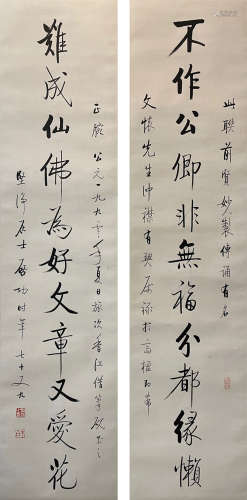 此聯前賢妙製傳誦有名
不作公卿非無福分都緣懶
文懷先生沖襟有契屬錄於高
難成仙佛為好文章又愛花
正腕 公元一九九 年夏日旅次香江借筆
堅淨居士啟功時年七十又九